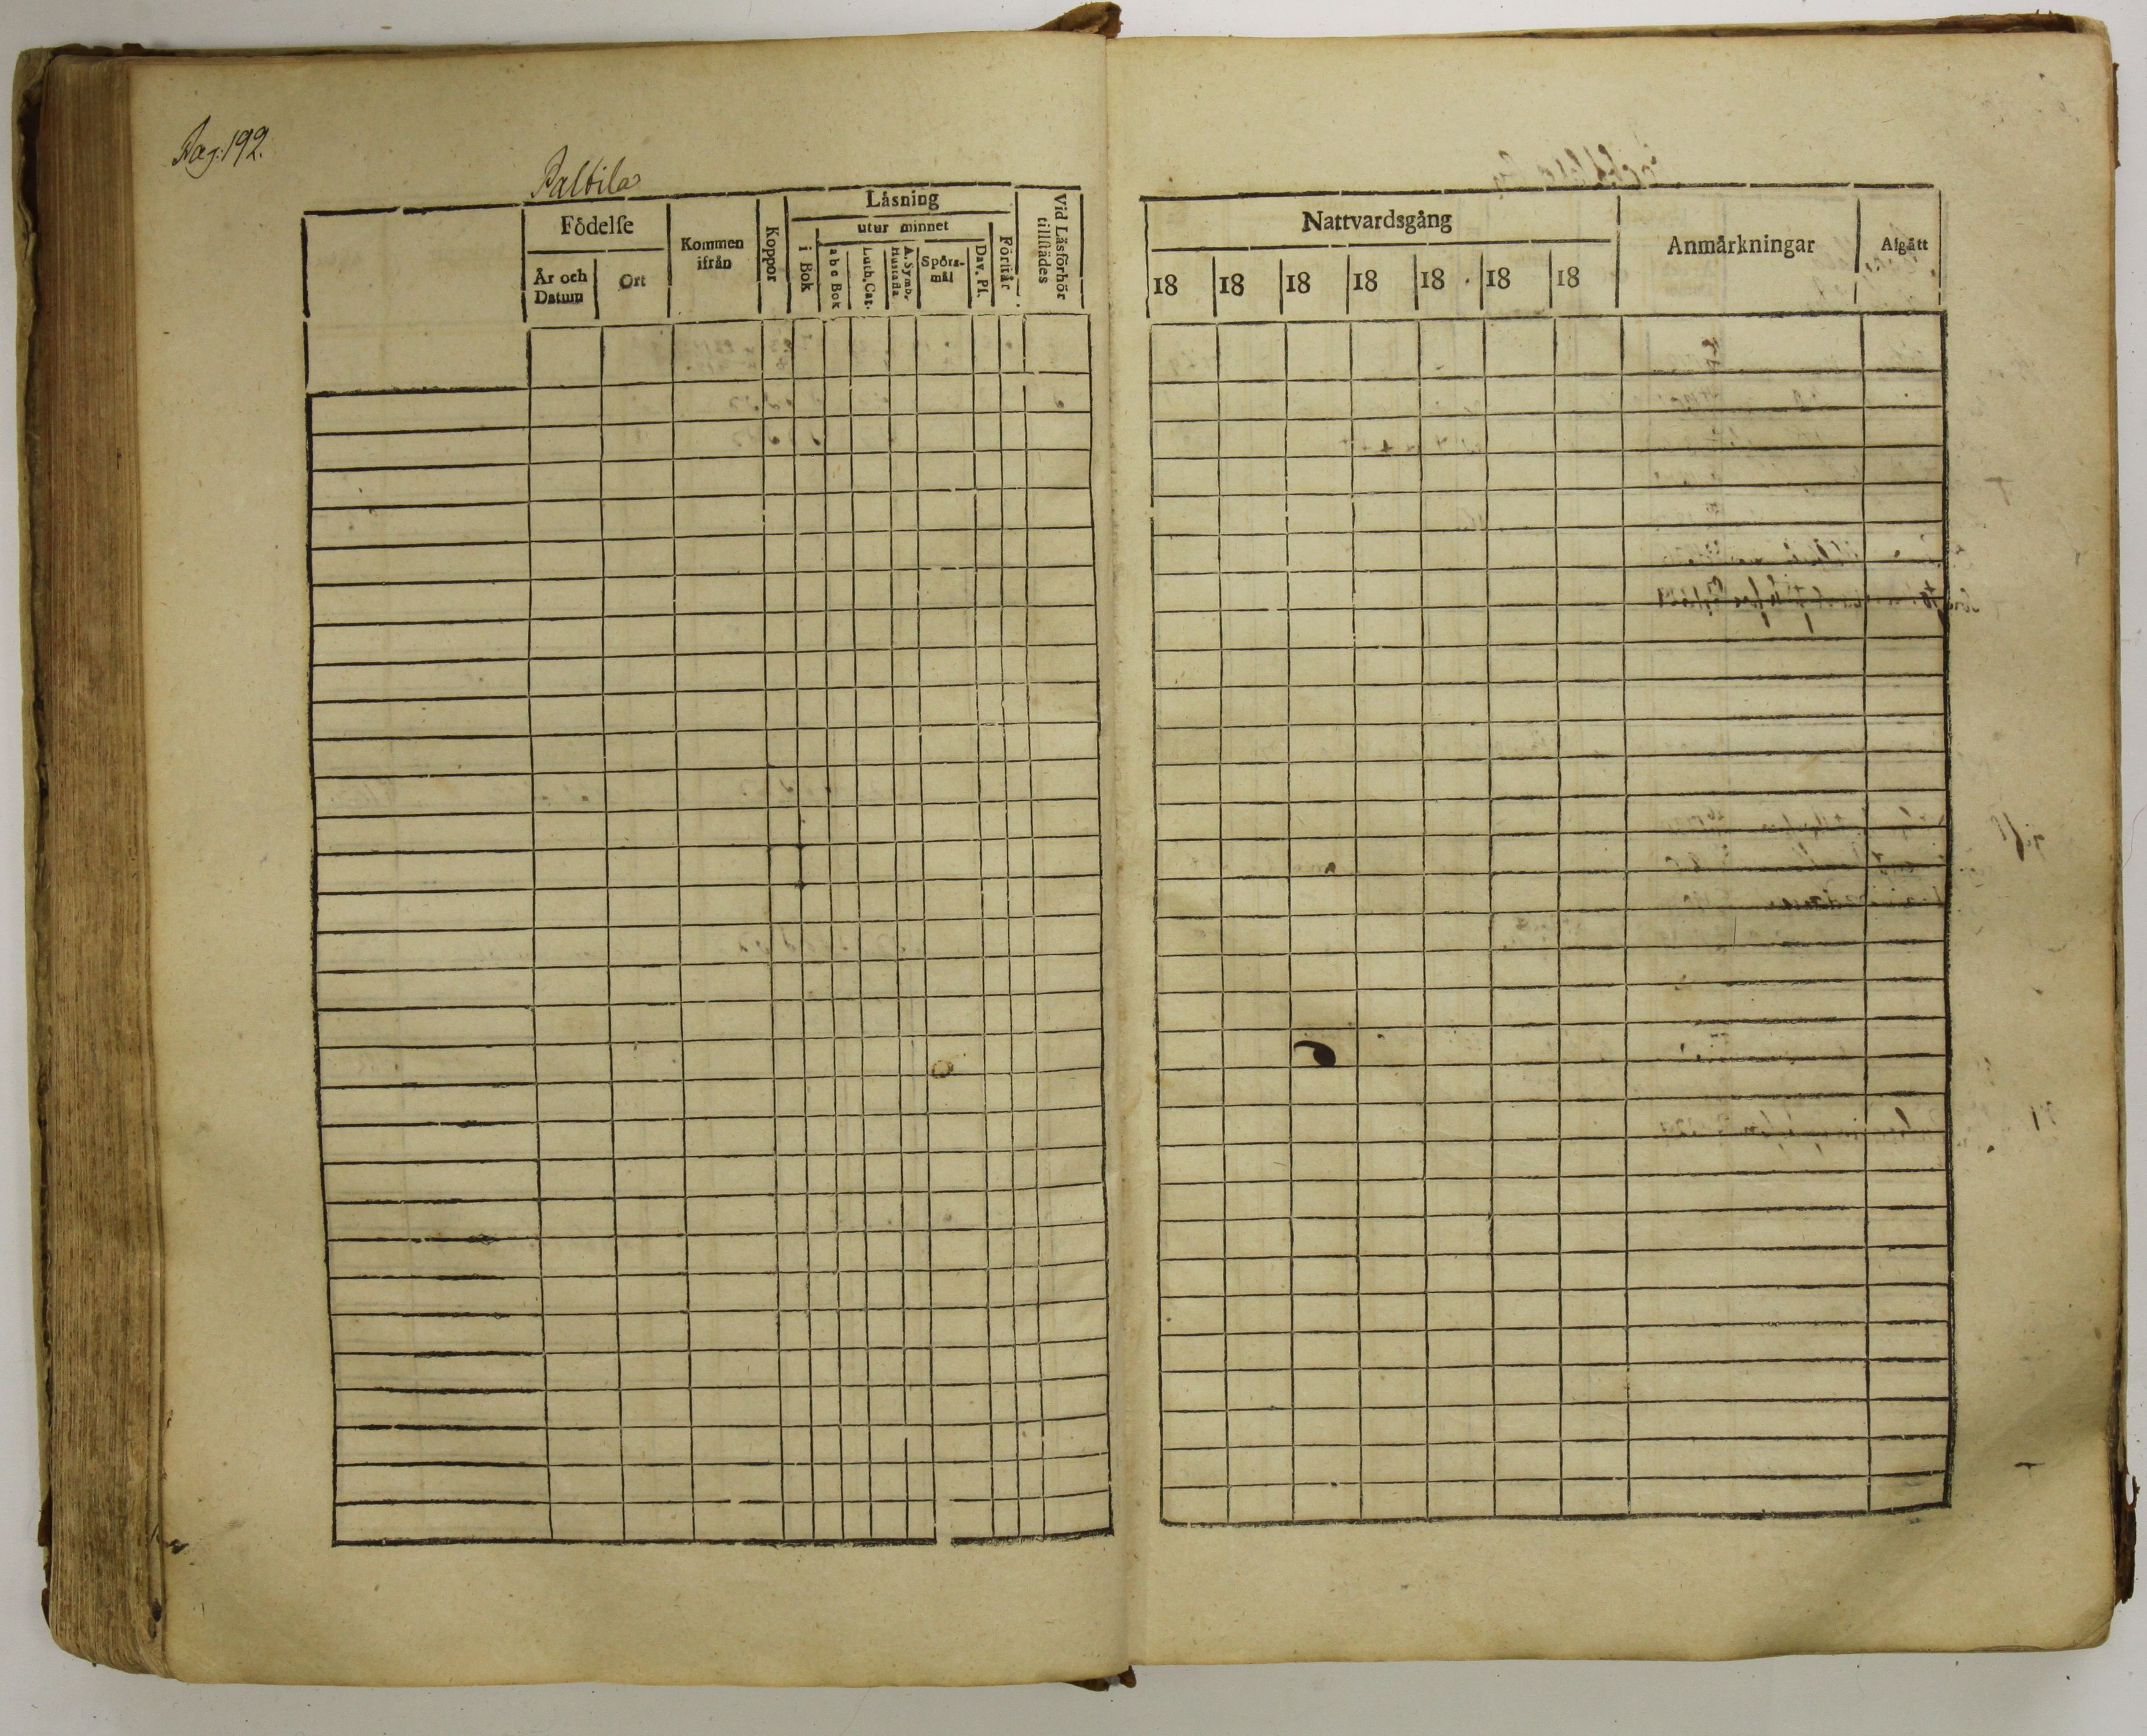 Pag: 192.
Paltila
Födelse
År och Datum
Ort
Kommen ifrån
Koppor
Läsning
i Bok
utur minnet
a b c Bok
Luth. Cat.
A. Symb. Hustafla
Spörs-mål
Dav. Ps.
Förstår
Vid Läsförhör tillstädes
Nattvardsgång
18 18 18 18 18 18 18
Anmärkningar
Afgått